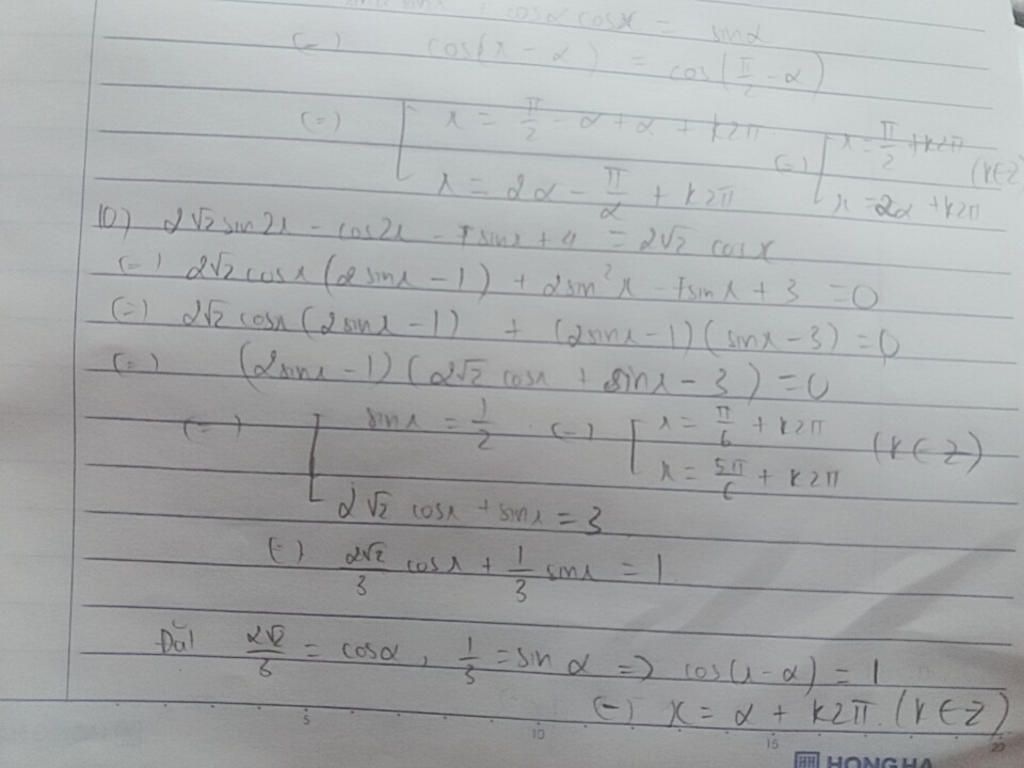 cosα cosx = sinα
(=) cos(x - α) = cos(π/2 - α)
(=) [ x = π/2 - α + α + k2π (=) [ x = π/2 + k2π (k∈Z)
x = 2α - π/2 + k2π x = 2α + k2π
10) 2√2 sin2x - cos2x - 7sinx + 4 = 2√2 cosx
(=) 2√2 cosx (2sinx - 1) + 2sin²x - 7sinx + 3 = 0
(=) 2√2 cosx (2sinx - 1) + (2sinx - 1)(sinx - 3) = 0
(=) (2sinx - 1)(2√2 cosx + sinx - 3) = 0
(=) [ sinx = 1/2 (=) [ x = π/6 + k2π (k∈Z)
x = 5π/6 + k2π
2√2 cosx + sinx = 3
(=) 2√2/3 cosx + 1/3 sinx = 1
Đặt 2√2/3 = cosα, 1/3 = sinα => cos(x - α) = 1
(=) x = α + k2π. (k∈Z)
5 10 15 20
HONG HA